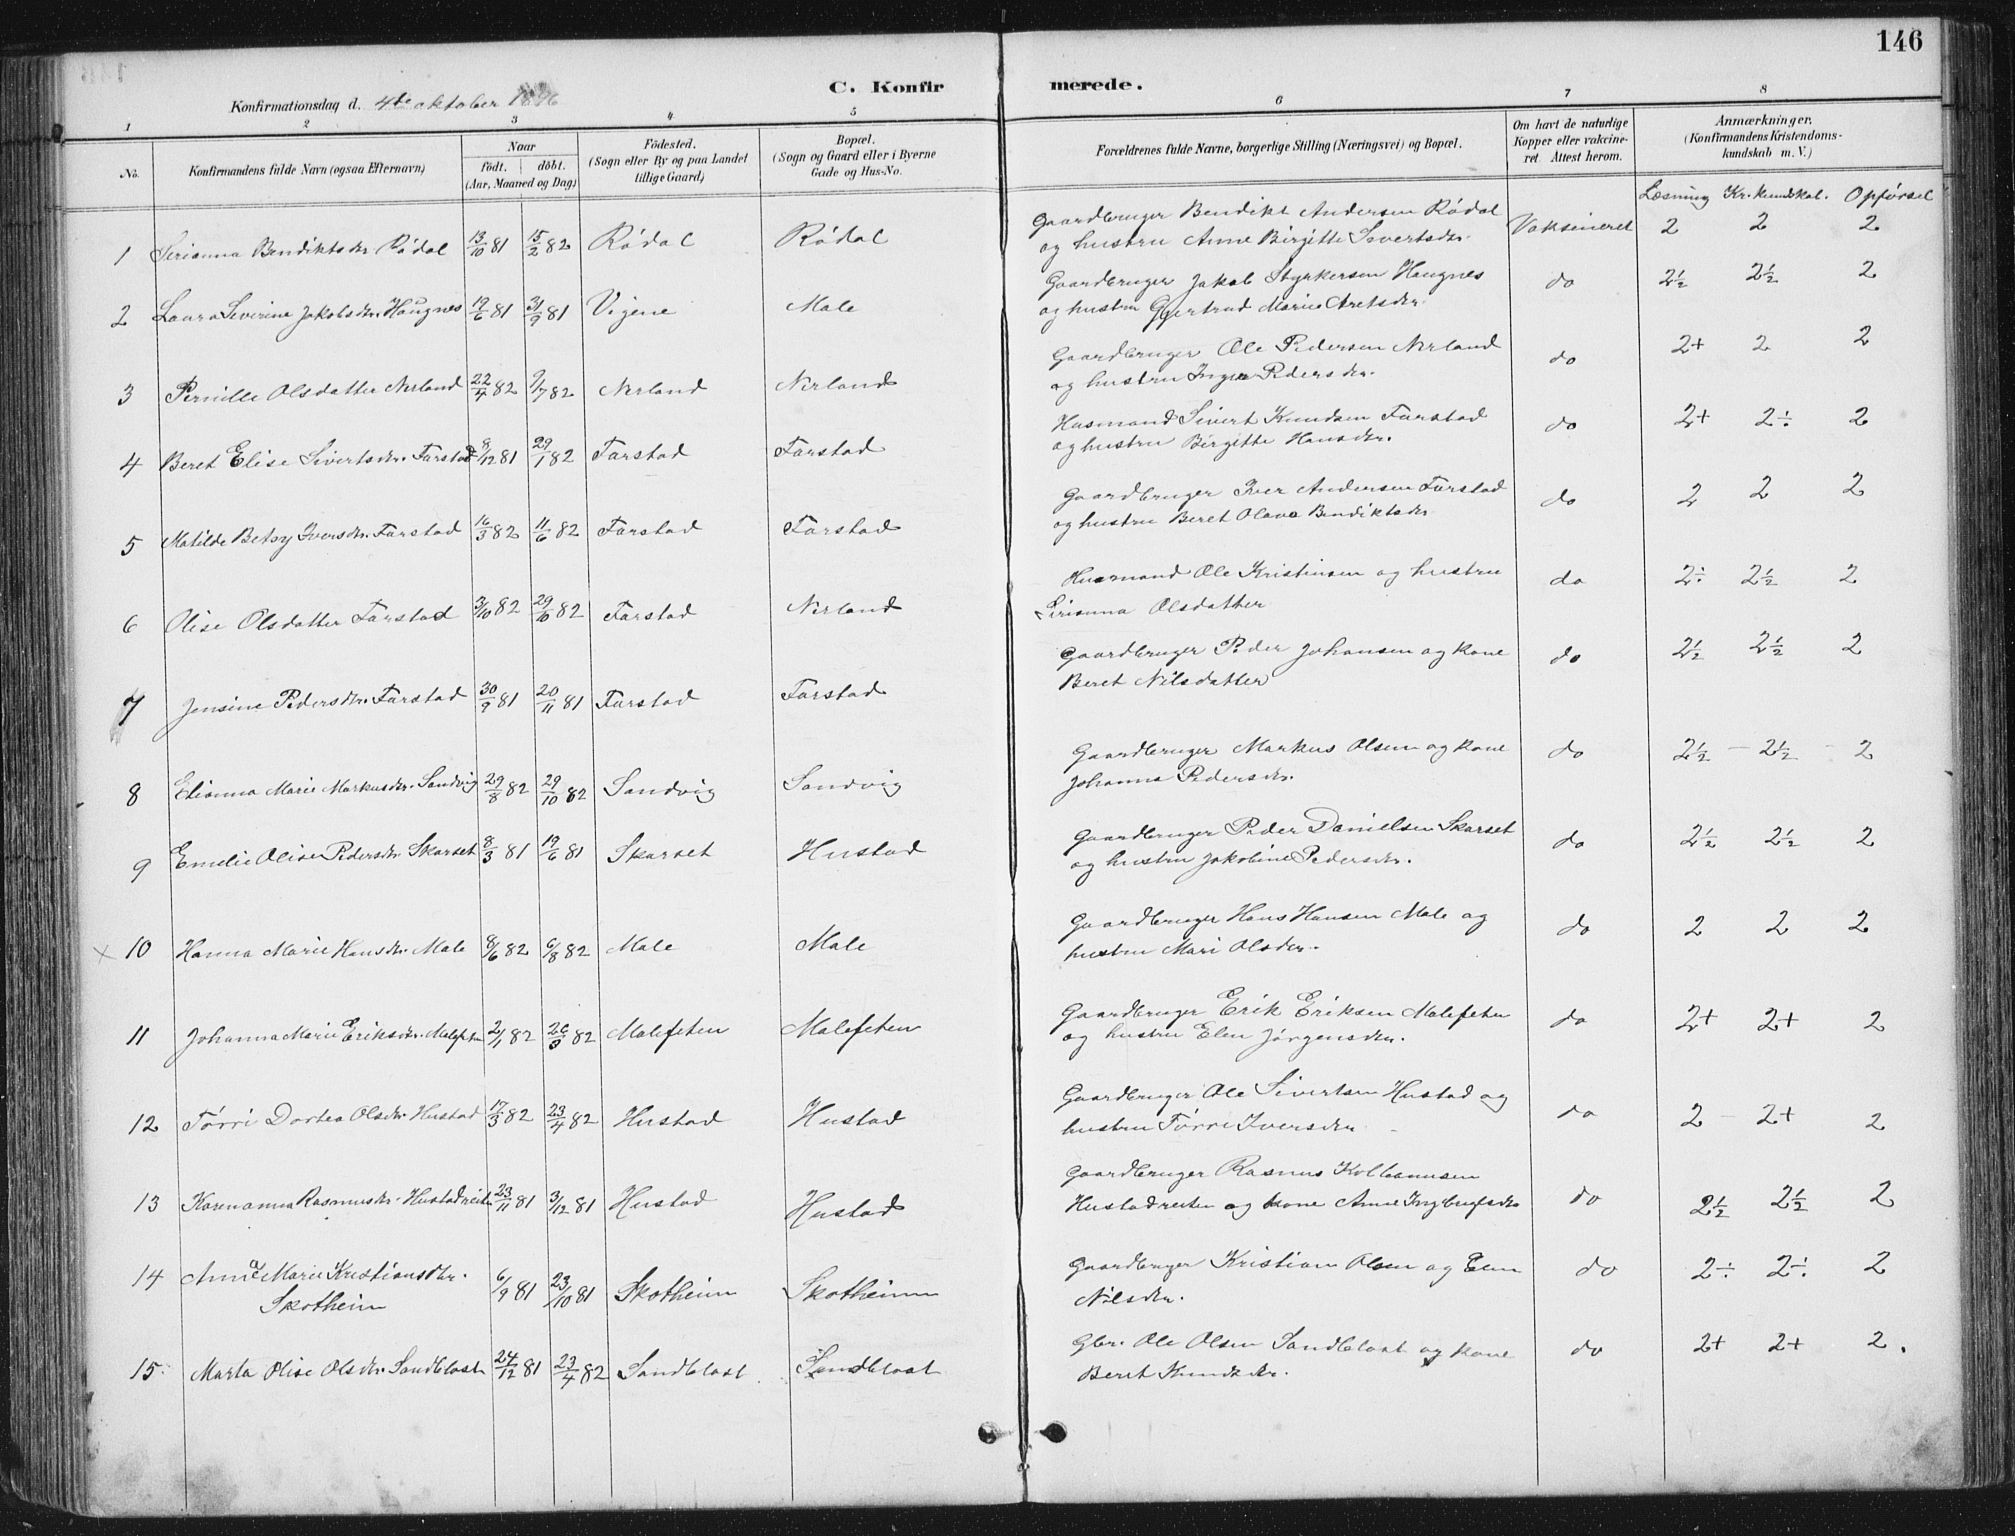 146
C. Konfirmerede.
Konfirmationsdag d. 4de oktober 1896
1 2 3 4 5 6 7 8
No. Konfirmandens fulde Navn (ogsaa Efternavn) Naar födt. döbt. (Aar, Maaned og Dag) Födested. (Sogn eller By og paa Landet tillige Gaard) Bopæl. (Sogn og Gaard eller i Byerne Gade og Hus-No. Forældrenes fulde Navne, borgerlige Stilling (Næringsvei) og Bopæl. Om havt de naturlige Kopper eller vakcineret. Attest herom. Anmærkninger. (Konfirmandens Kristendomskundskab m. V.)
Læsning Kr. kundskab. Opførsel
1 Serianna Bendiktsdr. Rødal 13/10 81 15/2 82 Rødal Rødal Gaardbruger Bendikt Andersen Rødal Vaksineret 2 2 2
og hustru Anne Birgitte Sivertsdr.
2 Laura Severine Jakobsdr. Haugnes 19/6 81 31/9 81 Vigene Male Gaardbruger Jakob Styrkersen Haugnes do 2½ 2½ 2
og hustru Gjertrud Marie Aretsdr.
3 Pernille Olsdatter Nerland 22/4 82 9/7 82 Nerland Nerland Gaardbruger Ole Pedersen Nerland do 2+ 2 2
og hustru Inger Pedersdr.
4 Beret Elise Sivertsdr. Farstad 8/12 81 29/1 82 Farstad Farstad Husmand Sivert Knudsen Farstad do 2+ 2÷ 2
og hustru Birgitte Hansdr.
5 Matilde Betsy Iversdr. Farstad 16/3 82 11/6 82 Farstad Farstad Gaardbruger Iver Andersen Farstad do 2 2 2
og hustru Beret Olava Bendiktsdr
6 Olise Olsdatter Farstad 3/10 82 29/10 82 Farstad Nerland Husmand Ole Kristinsen og hustru do 2÷ 2½ 2
Serianna Olsdatter
7 Jensine Pedersdr. Farstad 30/9 81 20/11 81 Farstad Farstad Gaardbruger Peder Johansen og kone do 2½ 2½ 2
Beret Nilsdatter
8 Elianna Marie Markusdr. Sandvig 29/8 82 29/10 82 Sandvig Sandvig Gaardbruger Markus Olsen og kone do 2½ - 2½ - 2
Johanna Pedersdr.
9 Emelie Olise Pedersdr. Skarset 8/3 81 19/6 81 Skarset Hustad Gaardbruger Peder Danielsen Skarset do 2½ 2½ 2
og hustru Jakobine Pedersdr.
× 10 Hanna Marie Hansdr. Male 8/6 82 6/8 82 Male Male Gaardbruger Hans Hansen Male og do 2 2 2
hustru Mari Olsdr.
11 Johanna Marie Eriksdr. Malefeten 2/1 82 82 Malefeten Malefeten Gaardbruger Erik Eriksen Malefeten do 2+ 2+ 2
og hustru Elen Jørgensdr.
12 Tørri Dortea Olsdr. Hustad 17/3 82 23/4 82 Hustad Hustad Gaardbruger Ole Sivertsen Hustad og do 2 - 2+ 2
hustru Tørri Iversdr
13 Karenanna Rasmusdr. Hustadreiten 23/11 81 3/12 81 Hustad Hustad Gaardbruger Rasmus Kolbeinsen do 2½ 2½ 2
Hustadreiten og kone Anne Ingbrigtsdr
14 Anne Marie Kristiansdtr. 6/9 81 23/10 81 Skotheim Skotheim Gaardbruger Kristian Olsen og Elen do 2÷ 2÷ 2
Skotheim Nilsdr.
15 Marta Olise Olsdr. Sandblost 24/12 81 23/4 82 Sandblost Sandblost Gbr. Ole Olsen Sandblost og kone do 2+ 2+ 2.
Beret Knudsdr.